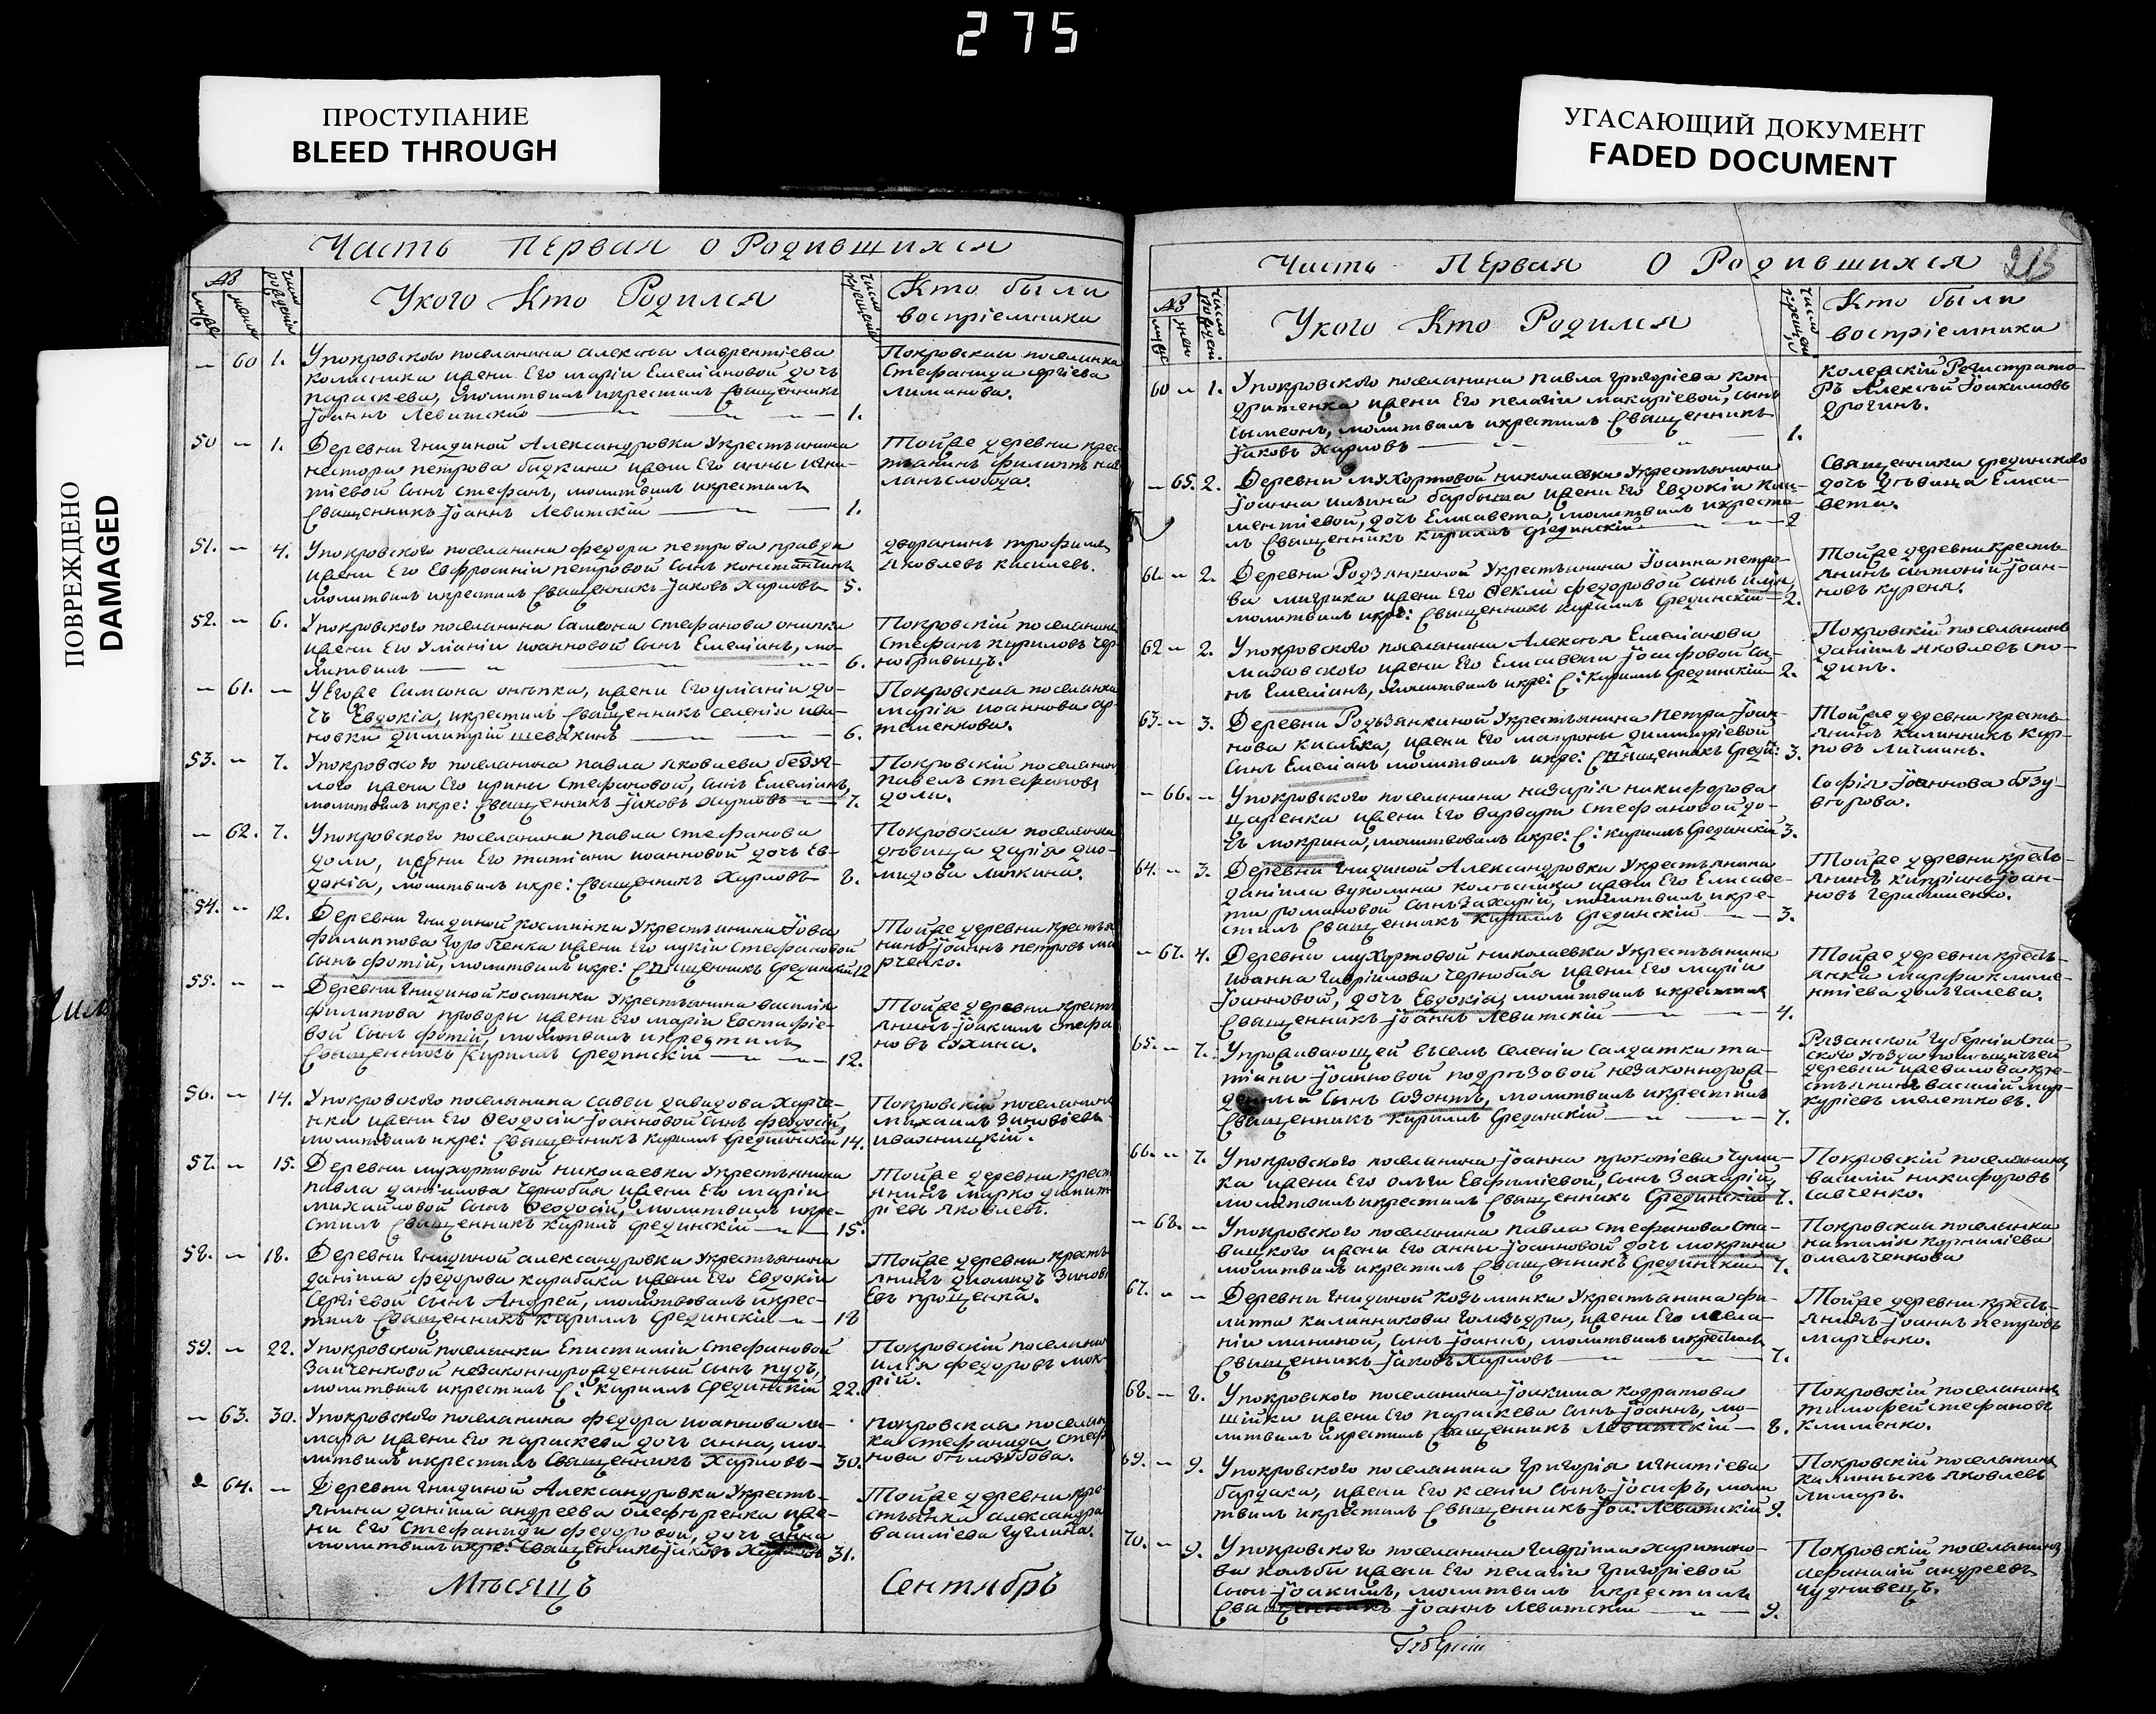 275
ПРОСТУПАНИЕ
BLEED THROUGH
УГАСАЮЩИЙ ДОКУМЕНТ
FADED DOCUMENT
ПОВРЕЖДЕНО
DAMAGED
Часть первая о Родившихся
Укого Кто Родился
Кто были
восприемники
— 60 1. Упокровского поселянина алексѣя лаврентіева
колисника ижени Его маріи Емеліановой дочь
параскева, молитвилъ икрестилъ Священникъ
Іоаннъ Левитскій 1.
Покровская поселянка
Стефанида сергіева
лиманова.
50 — 1. Деревни Гнидиной Александровки Укрестьянина
нестора петрова бидкина ижени Его анны игна-
тіевой Сынъ стефанъ, молитвилъ икрестилъ
Священникъ Іоаннъ Левитскій 1.
Тойже деревни крес
тьянинъ филиппъ
51. — 4. Упокровского поселянина федора петрова правди
ижени Его Евфросиніи петровой Сынъ константинъ
молитвилъ икрестилъ Священникъ Іаковъ Харловъ 5.
дворянинъ трофимъ
Яковлевъ киселевъ.
52. — 6. Упокровского поселянина Самсона Стефанова онипка
ижени Его Уліаніи иоанновой Сынъ Емеліанъ, мо-
литвилъ 6.
Покровскій поселянинъ
Стефанъ кириловъ чер-
нобривецъ.
— 61. — УЕгоже Самсона онипка, ижени Его уліаніи до-
чь Евдокіа, икрестилъ Священникъ селенія ива-
новки димитрій шевякинъ 6.
Покровская поселянка
маріа иоаннова ар-
теменкова.
53. — 7. Упокровского поселянина павла яковлева
лого ижени Его ирины Стефановой, Сынъ Емеліанъ,
молитвилъ икре: Священникъ Іаковъ Харловъ 7.
Покровскій поселянинъ
павелъ стефановъ
доля.
— 62. 7. Упокровского поселянина павла стефанова
доли, ижени Его татіани иоанновой дочь Ев-
докіа, молитвилъ икре: Священникъ Харловъ 8.
Покровская поселянка
дѣвица даріа дио-
мидова
54. — 12. Деревни Гнидиной косминки Укрестьянина Іова
филиппова ижени Его лукіи стефановой
Сынъ фотій, молитвилъ икре: Священникъ Срединскій 12
Тойже деревни крестья
нинъ Іоаннъ петровъ ма
рченко.
55. — — Деревни Гнидиной косминки Укрестьянина василія
филипова проворы ижени Его маріи Евстафіе-
вой Сынъ фотій, молитвилъ икрестилъ
Священникъ Кирилъ Срединскій 12.
Тойже деревни кресть
янинъ Іоакимъ стефа
новъ сухина.
56. — 14. Упокровского поселянина саввы давидова Харче-
нка ижени Его Феодосіи Іоанновой Сынъ феодосій,
молитвилъ икре: Священникъ кирилъ Срединскій 14.
Покровскій поселянинъ
михаилъ Зиновіевъ
иваницкій.
57. — 15. Деревни мухортовой николаевки Укрестьянина
павла даніилова чернобая ижени Его маріи
михайловой Сынъ Феодосій, молитвилъ икре-
стилъ Священникъ кирилъ Срединскій 15.
Тойже деревни крест
янинъ марко димит
ріевъ яковлевъ.
58. — 18. Деревни Гнидиной александровки Укрестьянина
даніила федорова карабака ижени Его Евдокіи
Сергіевой Сынъ Андрей, молитвовалъ икрес-
тилъ Священникъ кирилъ Срединскій 18
Тойже деревни кресть
янинъ диомидъ Зинові
Евъ прощенка.
59. — 22. Упокровской поселянки Епистиміи Стефановой
Заиченковой незаконнорожденный Сынъ пудъ,
молитвилъ икрестилъ С: Кирилъ Срединскій 22.
Покровскій поселянин
иліа федоровъ мок-
рій.
— 63. 30. Упокровского поселянина федора иоаннова ли-
маря ижени Его параскеви дочь анна, мо-
литвилъ икрестилъ Священникъ Харловъ 30.
покровская поселян
ка стефанида стеф
нова бѣлозубова.
64. — Деревни Гнидиной Александровки Укресть-
янина даніила андреева олефиренка иже-
ни Его Стефаниды федоровой, дочь анна
молитвилъ икре: Священникъ Іаковъ Харловъ 31.
Тойже деревни кре
стьянка александра
василіева гуглина.
Мѣсяцъ Сентябрь
Часть Первая О Родившихся 213
Укого Кто Родился
Кто были
воспріемники
60 — 1. Упокровского поселянина павла григоріева кон-
дратенка ижени Его пелагіи макаріевой, сынъ
Сымеонъ, молитвилъ икрестилъ Священникъ
Іаковъ Харловъ 1.
колежскій Регистрато-
ръ Алексѣй Іоакимовъ
дрогинъ.
— 65. 2. Деревни мухортовой николаевки Укрестьянина
Іоанна ильина барбыта ижени Его Евдокіи кли-
ментіевой, дочь Елисавета, молитвилъ икрести-
лъ Священникъ кирилъ Срединскій 2
Священника срединского
дочь дѣвица Елиса-
вета.
61. — 2. Деревни Родзянкиной Укрестьянина Іоанна петро-
ва мигрика ижени Его Феклы федоровой сынъ
молитвилъ икре: Священникъ кирилъ Срединскій 2.
Тойже деревни кресть-
янинъ антоній Іоан-
новъ куреня.
62 — 2. Упокровского поселянина Алексѣя Емеліанова
маховского ижени Его Елисавети Іосифовой сы-
нъ Емеліанъ, молитвилъ икре: С: Кирилъ Срединскій 2.
Покровскій поселянинъ
даніилъ яковлевъ спо-
динъ.
63. — 3. Деревни Родьзянкиной Укрестьянина петра Іоан-
нова ижени Его матроны димитріевой
Сынъ Емеліанъ молитвилъ икре: Священникъ Среди: 3.
Тойже деревни кресть-
янинъ калинникъ кар-
повъ личминъ.
— 66. — Упокровского поселянина назаріа никифорова
царенка ижени Его варвари Стефановой до-
чь мокрина, молитвовалъ икре: С: кирилъ Срединскій 3.
Софія Іоаннова бузу-
вѣрова.
64. — 3. Деревни Гнидиной Александровки Укрестьянина
даніила вуколина колѣсника ижени Его Елисаве-
ти романовой Сынъ Захарій, молитвилъ икре-
стилъ Священникъ Кирилъ Срединскій 3.
Тойже деревни кресть-
янинъ кипріанъ Іоан-
новъ герасименко.
— 67. 4. Деревни мухортовой николаевки Укрестьянина
иоанна гавріилова чернобая ижени Его маріи
Іоанновой, дочь Евдокіа, молитвилъ икрестилъ
Священникъ Іоаннъ Левитскій 4.
Тойже деревни кресть-
янка марфа климе-
нтіева долъгалева.
65. — 7. Упроживающей въсемъ селеніи Салдатки та-
тіаны Іоанновой подрѣзовой незаконнорож-
денный Сынъ Созонтъ, молитвилъ икрестилъ
Священникъ Кирилъ Срединскій 7.
Рязанской губерніи Спа-
ского уѣзда помѣщичъей
деревни ижевалова кре-
стьянинъ василій мер-
куріевъ мелетковъ.
66. — 7. Упокровского поселянина Іоанна прокопіева Чума-
ка ижени Его олъги Евфиміевой, Сынъ Захарій,
молитвилъ икрестилъ Священникъ Срединскій 7.
Покровскій поселянинъ
василій никифоровъ
савченко.
— 68. — Упокровского поселянина павла стефанова Ста-
вицкого ижени Его анны Іоанновой дочь мокрина
молитвилъ икрестилъ Священникъ Срединскій 7.
Покровская поселянка
наталія корниліева
омельченкова
67. — — Деревни Гнидиной козьминки Укрестьянина фи-
липа калинникова голиздры, ижени Его мела-
ніи мининой, Сынъ Іоаннъ, молитвилъ икрестилъ
Священникъ Іаковъ Харловъ 7.
Тойже деревни кресть-
янинъ Іоаннъ петровъ
марченко.
68. — 8. Упокровского поселянина Іоакима кодратова
шійки ижени Его параскева Сынъ Іоаннъ, мо-
литвилъ икрестилъ Священникъ Левитскій 8.
Покровскій поселянинъ
тимофей стефановъ
клименко.
69. — 9. Упокровского поселянина григоріа игнатіева
бардака, ижени Его ксеніи Сынъ Іосифъ, моли
твилъ икрестилъ Священникъ Іоа: Левитскій 9.
Покровскій поселянинъ
калинникъ яковлевъ
лимаръ.
70. — 9. Упокровского поселянина гавріила харитоно-
ва колъбы ижени Его пелагіи григоріевой
Сынъ Іоакимъ, молитвилъ икрестилъ
Священникъ Іоаннъ Левитскій 9.
Покровскій поселянинъ
афанасій андреевъ
чуднивецъ.